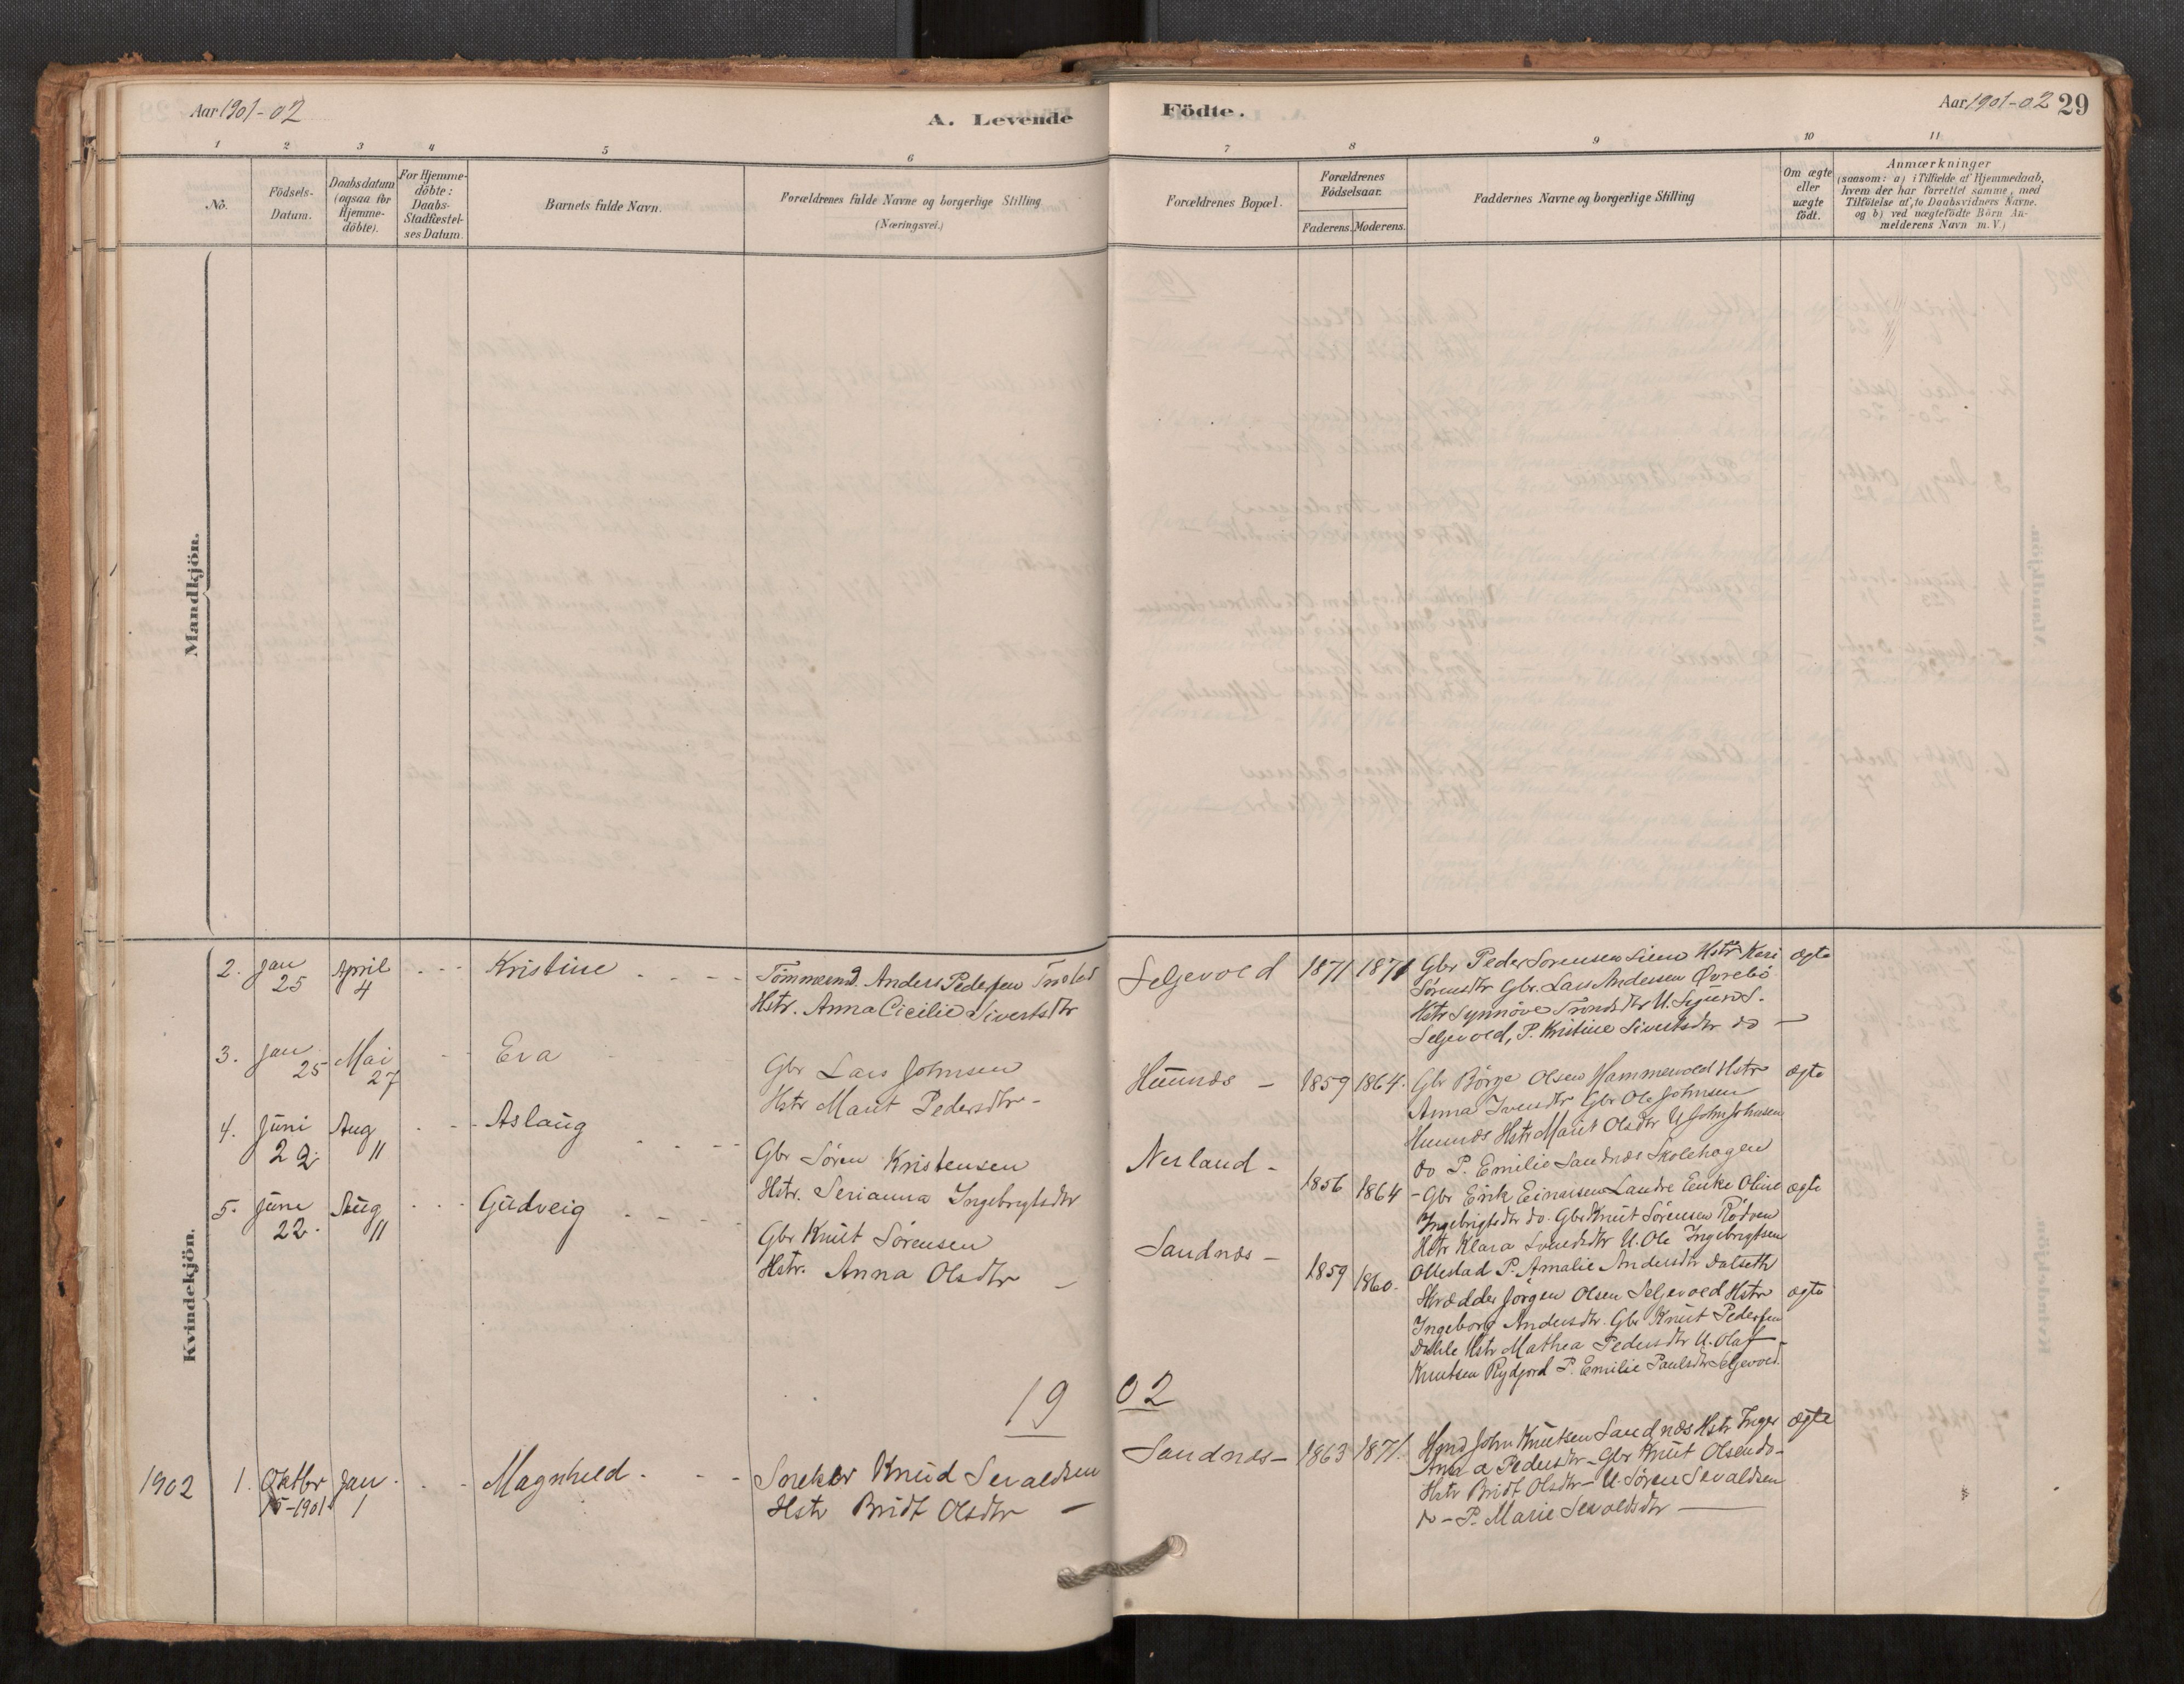 Aar 1901-02
A. Levende
Födte.
Aar 1901-02 29
1 2 3 4 5 6 7 8 9 10 11
No.
Födsels-
Datum.
Daabsdatum
(ogsaa for
Hjemme-
döbte).
For Hjemme-
döbte:
Daabs-
Stadfæstel-
ses Datum.
Barnets fulde Navn.
Forældrenes fulde Navne og borgerlige Stilling
(Næringsvei.)
Forældrenes Bopæl.
Forældrenes
Födselsaar.
Faderens. Moderens.
Faddernes Navne og borgerlige Stilling
Om ægte
eller
uægte
födt.
Anmærkninger
(saasom: a) i Tilfælde af Hjemmedaab,
hvem der har forrettet samme, med
Tilföielse af to Daabsvidners Navne.
og b) ved uægtefödte Börn An-
melderens Navn m.V.)
Mandkjön.
Kvindekjön.
2. Jan
25
April
4
Kristine
Tömmermd. Anders Pedersen
Hstr. Anna Cicilie Sivertsdtr
Seljevold
1871 1871
Gbr Peder Sorensen Hstr Kari
Sørensdtr Gbr. Lars Andersen Øvrebö
Hstr Synnöve Trondsdtr U. Sigurd S.
Seljevold, P. Kristine Sivertsdtr do
ægte
3. Jan
25
Mai
27
Eva
Gbr Lars Johnsen
Hstr Marit Pedersdtr
Hünnds
1859 1864.
Gbr Börge Olsen Hammervold Hstr
Anna Iversdtr Gbr Ole Johnsen
Hunnds Hstr Marit Olsdtr U John Johnsen
do P. Emilie Sandnæs Skolehagen
ægte
4. Juni
22
Aug
11
Aslaug
Gbr Sören Kristensen
Hstr. Serianna Ingebrigtsdtr
Nerland
1856 1864
Gbr Erik Einarsen Landre Enke Oline
Ingebrigtsdtr do. Gbr Knut Sørensen Rødven
Hstr Klara Svendsdtr U. Ole Ingebrigtsen
Ollestad P. Amalie Andersdtr Dalseth
ægte
5. Juni
22.
Aug
11
Gudveig
Gbr Knut Sörensen
Hstr. Anna Olsdtr
Sandnæs
1859 1860.
Skrædder Jörgen Olsen Seljevold Hstr
Ingeborg Andersdtr. Gbr Knut Pedersen
Dahle Hstr Mathea Pedersdtr U. Olaf
Knutsen Rydjord P. Emilie Paulsdtr Seljevold.
ægte
19 02
1902
1. Oktbr
15-1901
Jan
1
Magnhild
Snekker Knud Sevaldsen
Hstr Bridt Olsdtr
Sandnæs
1863 1871.
Hmd John Knutsen Sandnæs Hstr Inger
Anna Pedersdtr - Gbr Knut Olsen do-
Hstr Bridt Olsdtr - U. Søren Sevaldsen
do - P. Marie Sevoldsdtr
ægte